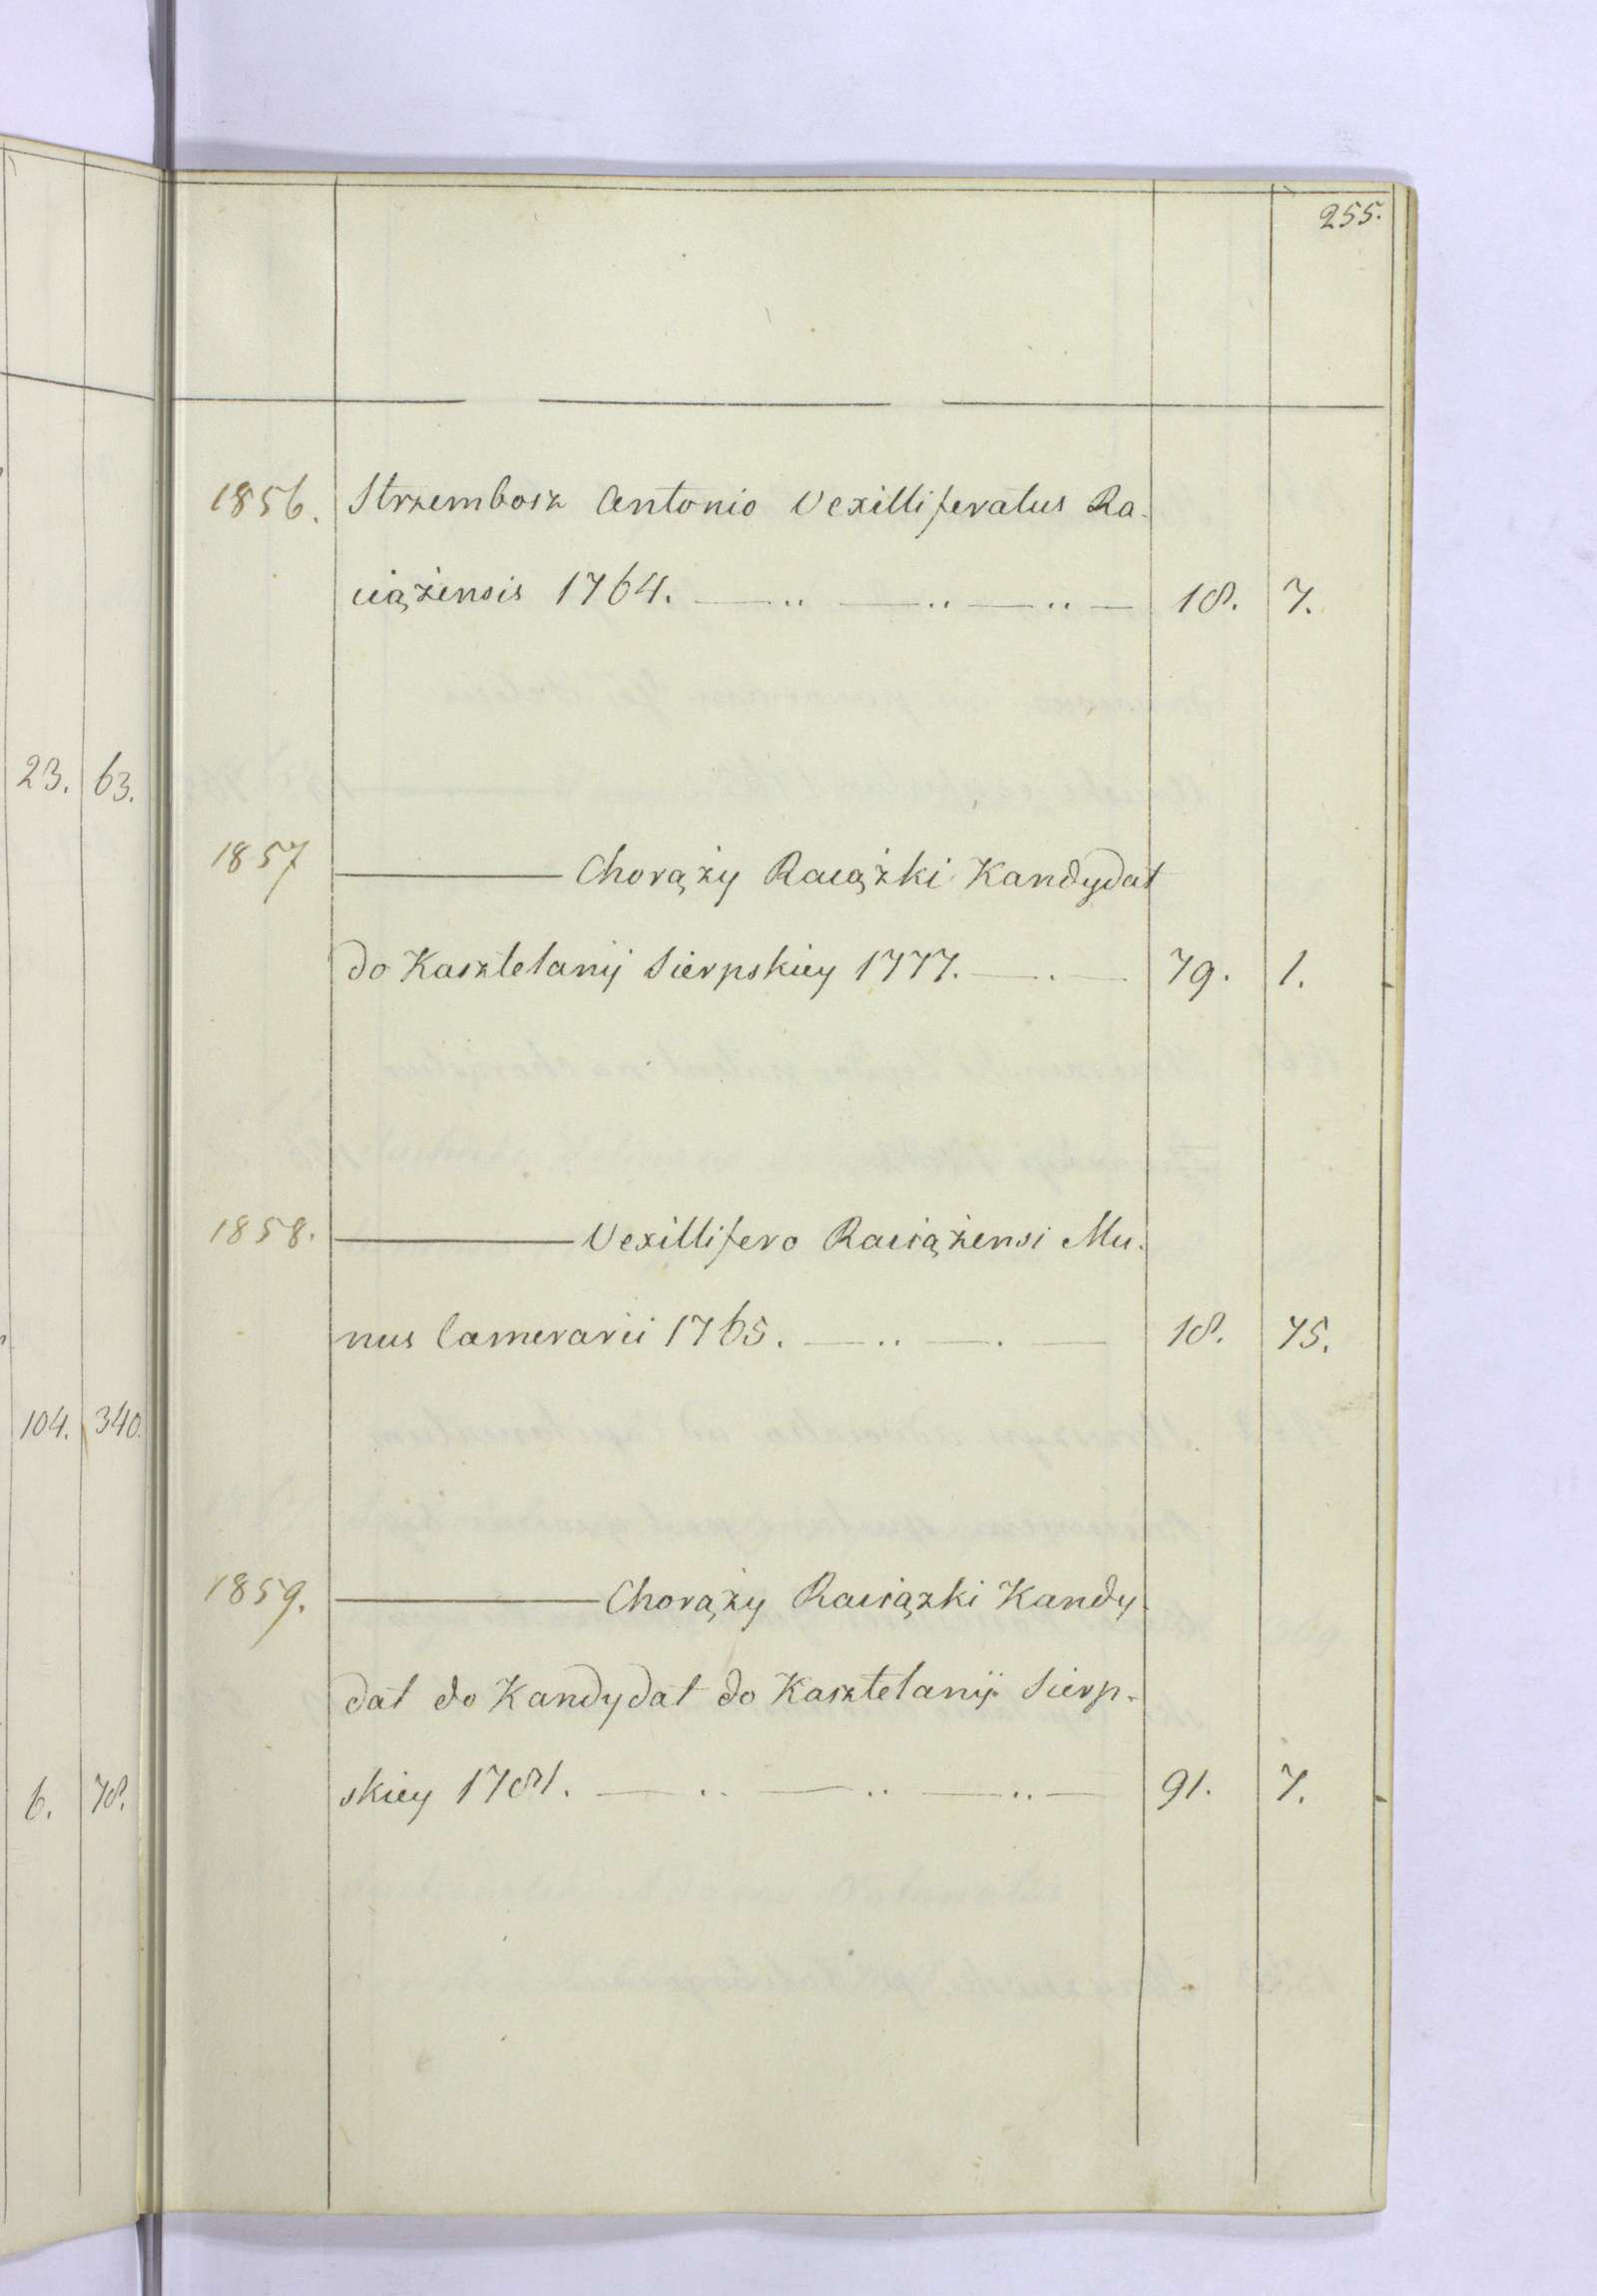 255.
1856. Strzembosz Antonio Vexilliferatus Ra-
ciążensis 1764. 18. 7.
23. 63.
1857 ——— Chorąży Raciążki Kandydat
do Kasztelanij Sierpskiey 1777. 79. 1.
1858. ——— Vexillifero Raciążensi Mu-
nus Camerarii 1765. 18. 75.
104. 340.
1859. ——— Chorąży Raciązki Kandy-
dat do Kandydat do Kasztelanij Sierp-
skiey 1781. 91. 7.
6. 78.